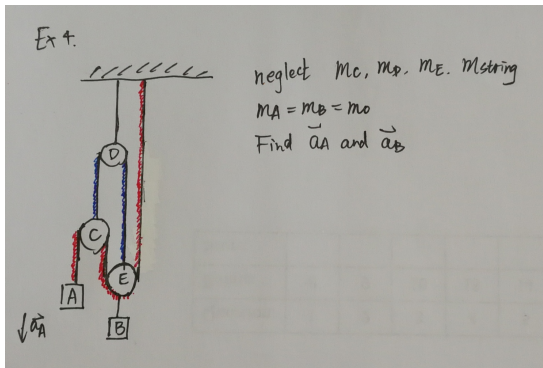 Ex 4.
neglect mc, mD, mE. mstring
mA = mB = m0
Find a⃗A and a⃗B
D
C
E
A
B
↓a⃗A